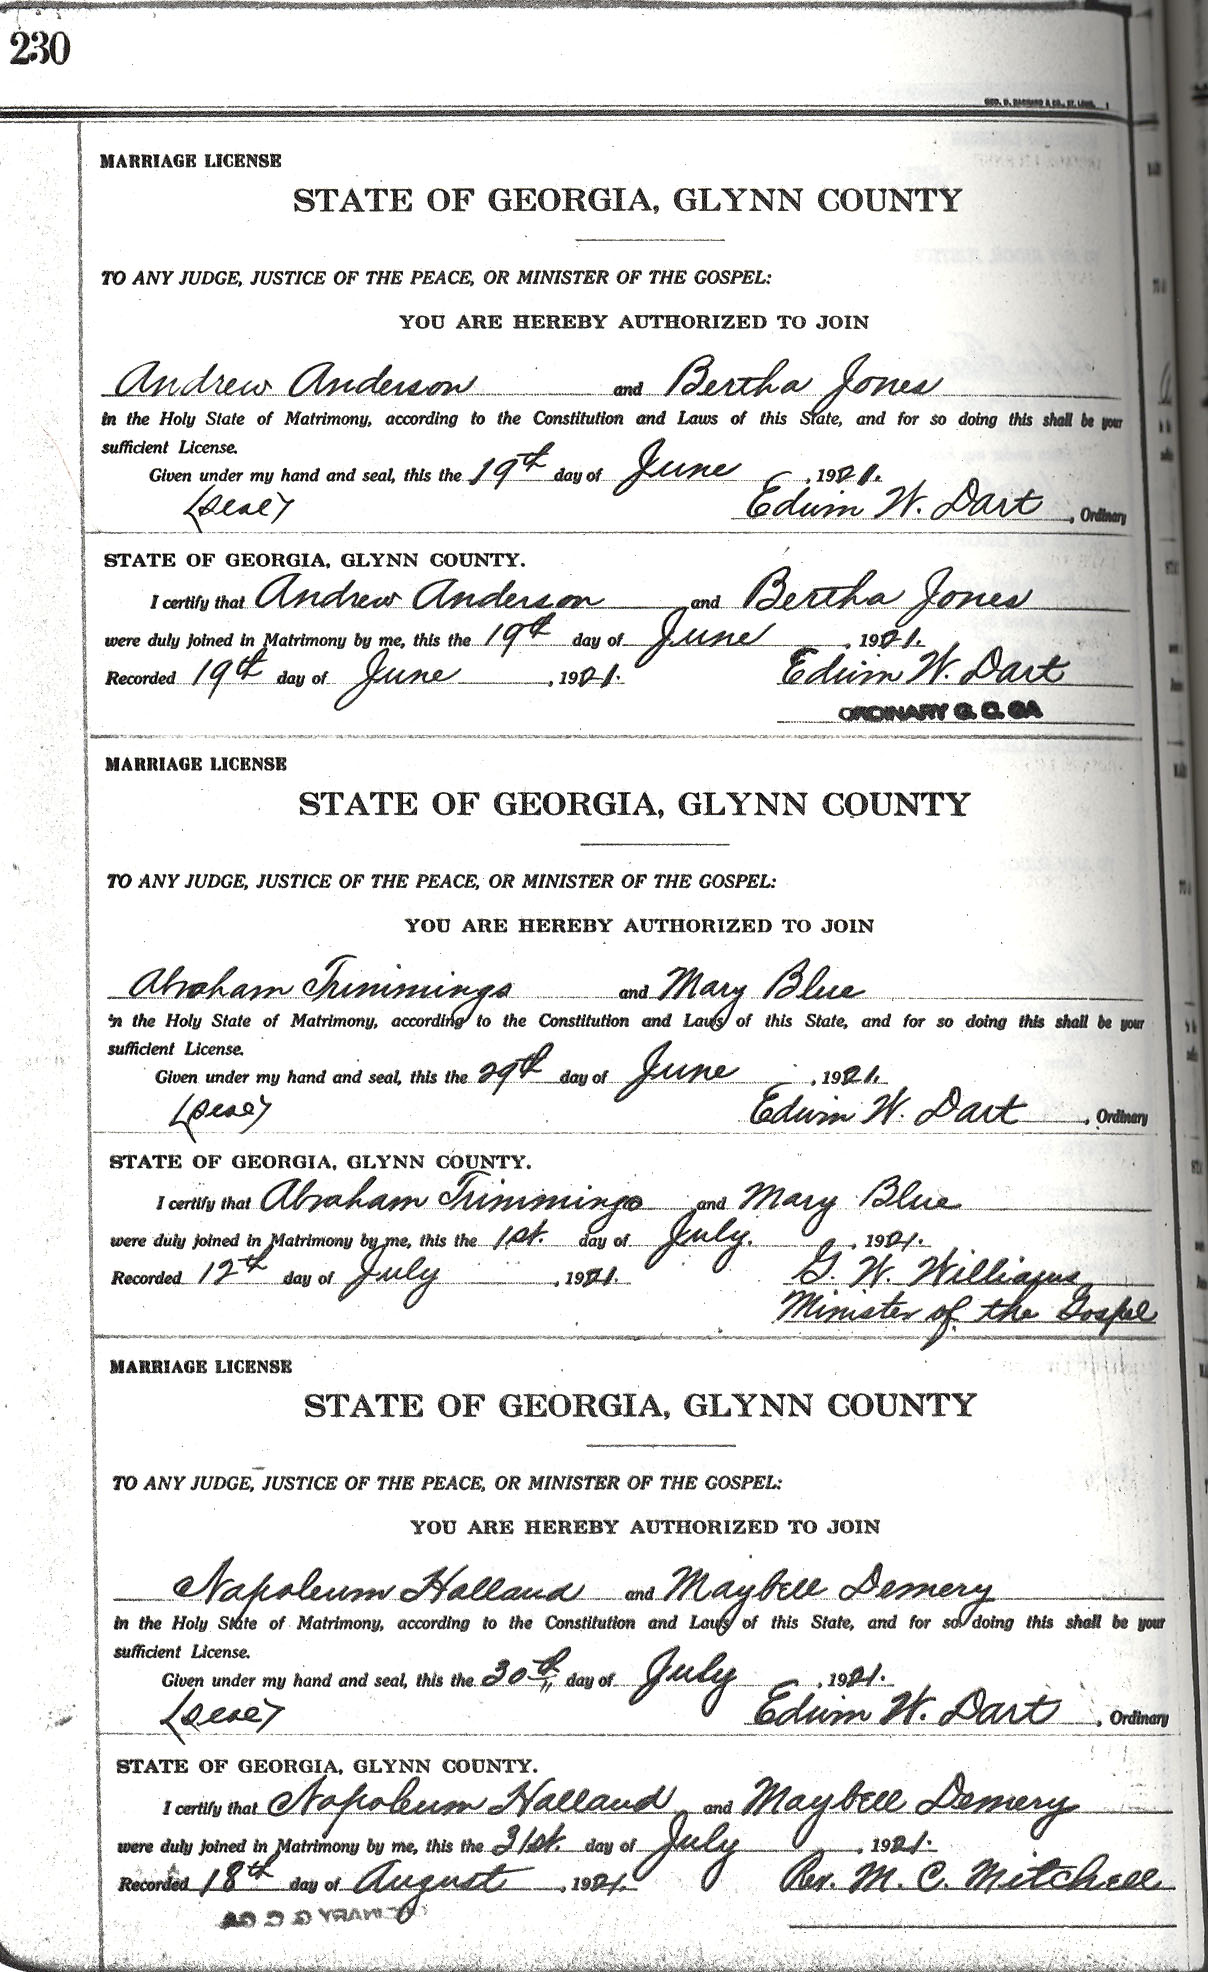 230
GEO. D. BARNARD & CO., ST. LOUIS
MARRIAGE LICENSE
STATE OF GEORGIA, GLYNN COUNTY
TO ANY JUDGE, JUSTICE OF THE PEACE, OR MINISTER OF THE GOSPEL:
YOU ARE HEREBY AUTHORIZED TO JOIN
Andrew Anderson and Bertha Jones
in the Holy State of Matrimony, according to the Constitution and Laws of this State, and for so doing this shall be your
sufficient License.
Given under my hand and seal, this the 19th day of June, 1921.
(Seal) Edwin W. Dart, Ordinary
STATE OF GEORGIA, GLYNN COUNTY.
I certify that Andrew Anderson and Bertha Jones
were duly joined in Matrimony by me, this the 19th day of June, 1921.
Recorded 19th day of June, 1921. Edwin W. Dart
ORDINARY G. C. GA
MARRIAGE LICENSE
STATE OF GEORGIA, GLYNN COUNTY
TO ANY JUDGE, JUSTICE OF THE PEACE, OR MINISTER OF THE GOSPEL:
YOU ARE HEREBY AUTHORIZED TO JOIN
Abraham Trimmings and Mary Blue
in the Holy State of Matrimony, according to the Constitution and Laws of this State, and for so doing this shall be your
sufficient License.
Given under my hand and seal, this the 29th day of June, 1921.
(Seal) Edwin W. Dart, Ordinary
STATE OF GEORGIA, GLYNN COUNTY.
I certify that Abraham Trimmings and Mary Blue
were duly joined in Matrimony by me, this the 1st. day of July., 1921.
Recorded 12th day of July, 1921. G. W. Williams
Minister of the Gospel
MARRIAGE LICENSE
STATE OF GEORGIA, GLYNN COUNTY
TO ANY JUDGE, JUSTICE OF THE PEACE, OR MINISTER OF THE GOSPEL:
YOU ARE HEREBY AUTHORIZED TO JOIN
Napoleum Holland and Maybell Demery
in the Holy State of Matrimony, according to the Constitution and Laws of this State, and for so doing this shall be your
sufficient License.
Given under my hand and seal, this the 30th day of July, 1921.
(Seal) Edwin W. Dart, Ordinary
STATE OF GEORGIA, GLYNN COUNTY.
I certify that Napoleum Holland and Maybell Demery
were duly joined in Matrimony by me, this the 31st. day of July, 1921.
Recorded 18th day of August, 1921. Rev. M. C. Mitchell